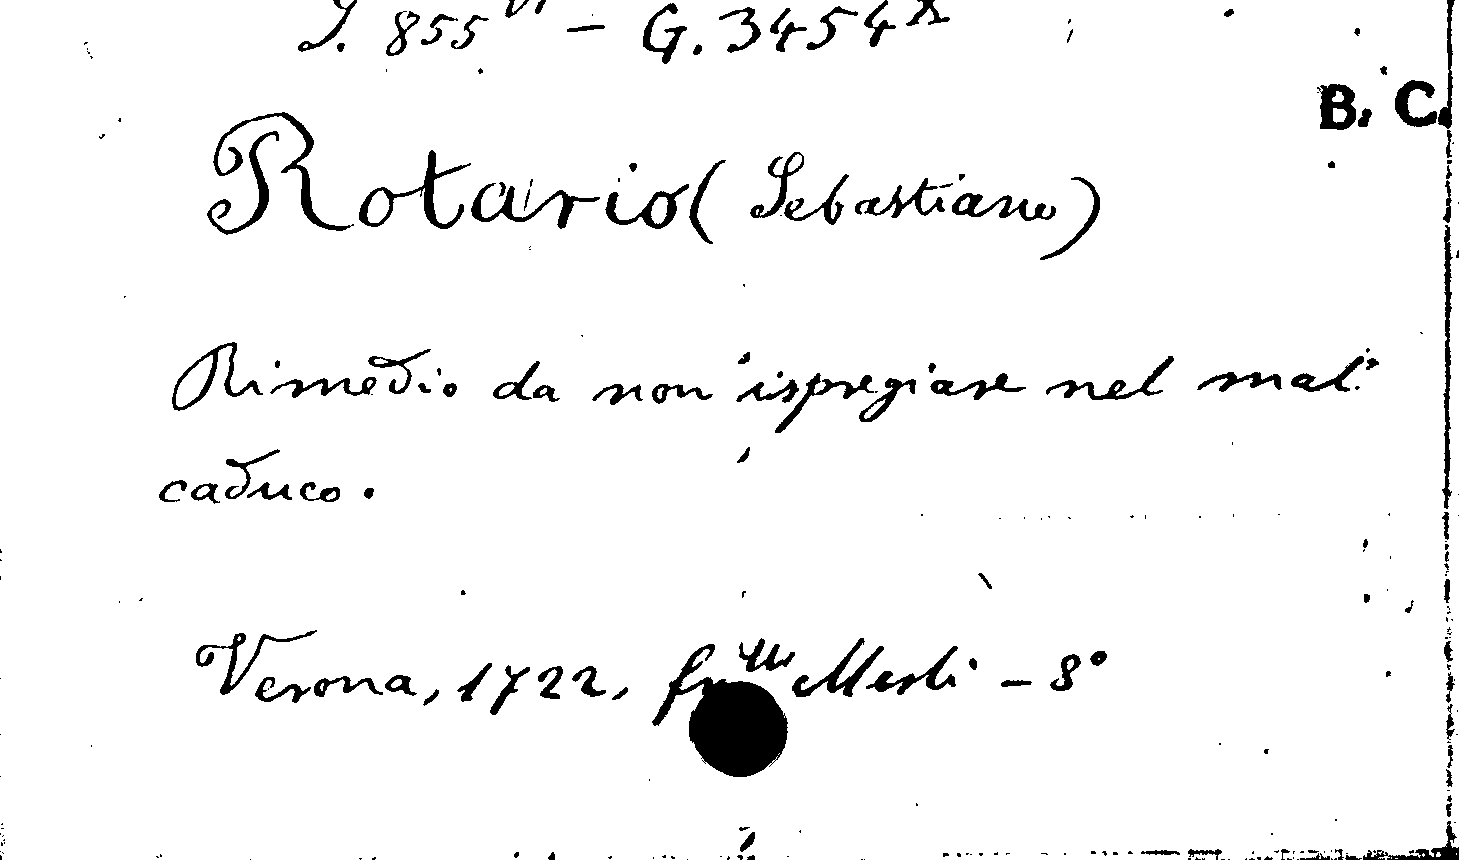 J. 855 VI – G. 3454 X
B. C.
Rotario (Sebastiano)
Rimedio da non ispregiare nel mal
caduco.
Verona, 1722, fr.lli Merli – 8°